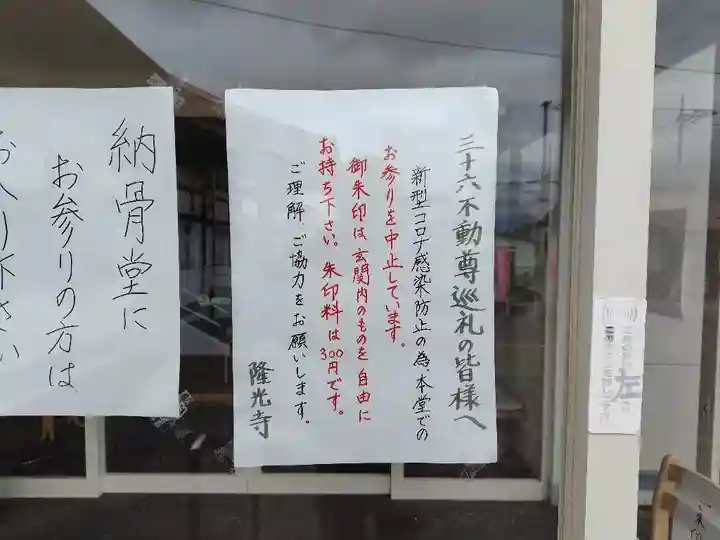 三十六不動尊巡礼の皆様へ
新型コロナ感染防止の為、本堂での
お参りを中止しています。
御朱印は、玄関内のものを自由に
お持ち下さい。朱印料は300円です。
ご理解、ご協力をお願いします。
隆光寺
納骨堂に
お参りの方は
お入り下さい
左